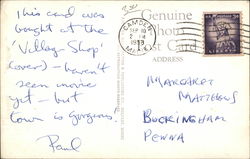 This card was
bought at the
'Village Shop'
(over) - haven't
seen movie
yet - but
town is gorgeous.
Paul
Genuine
Post Card
ADDRESS
CAMDEN
SEP 10
2 PM
MARGARET
MATTHEWS
BUCKINGHAM
PENNA